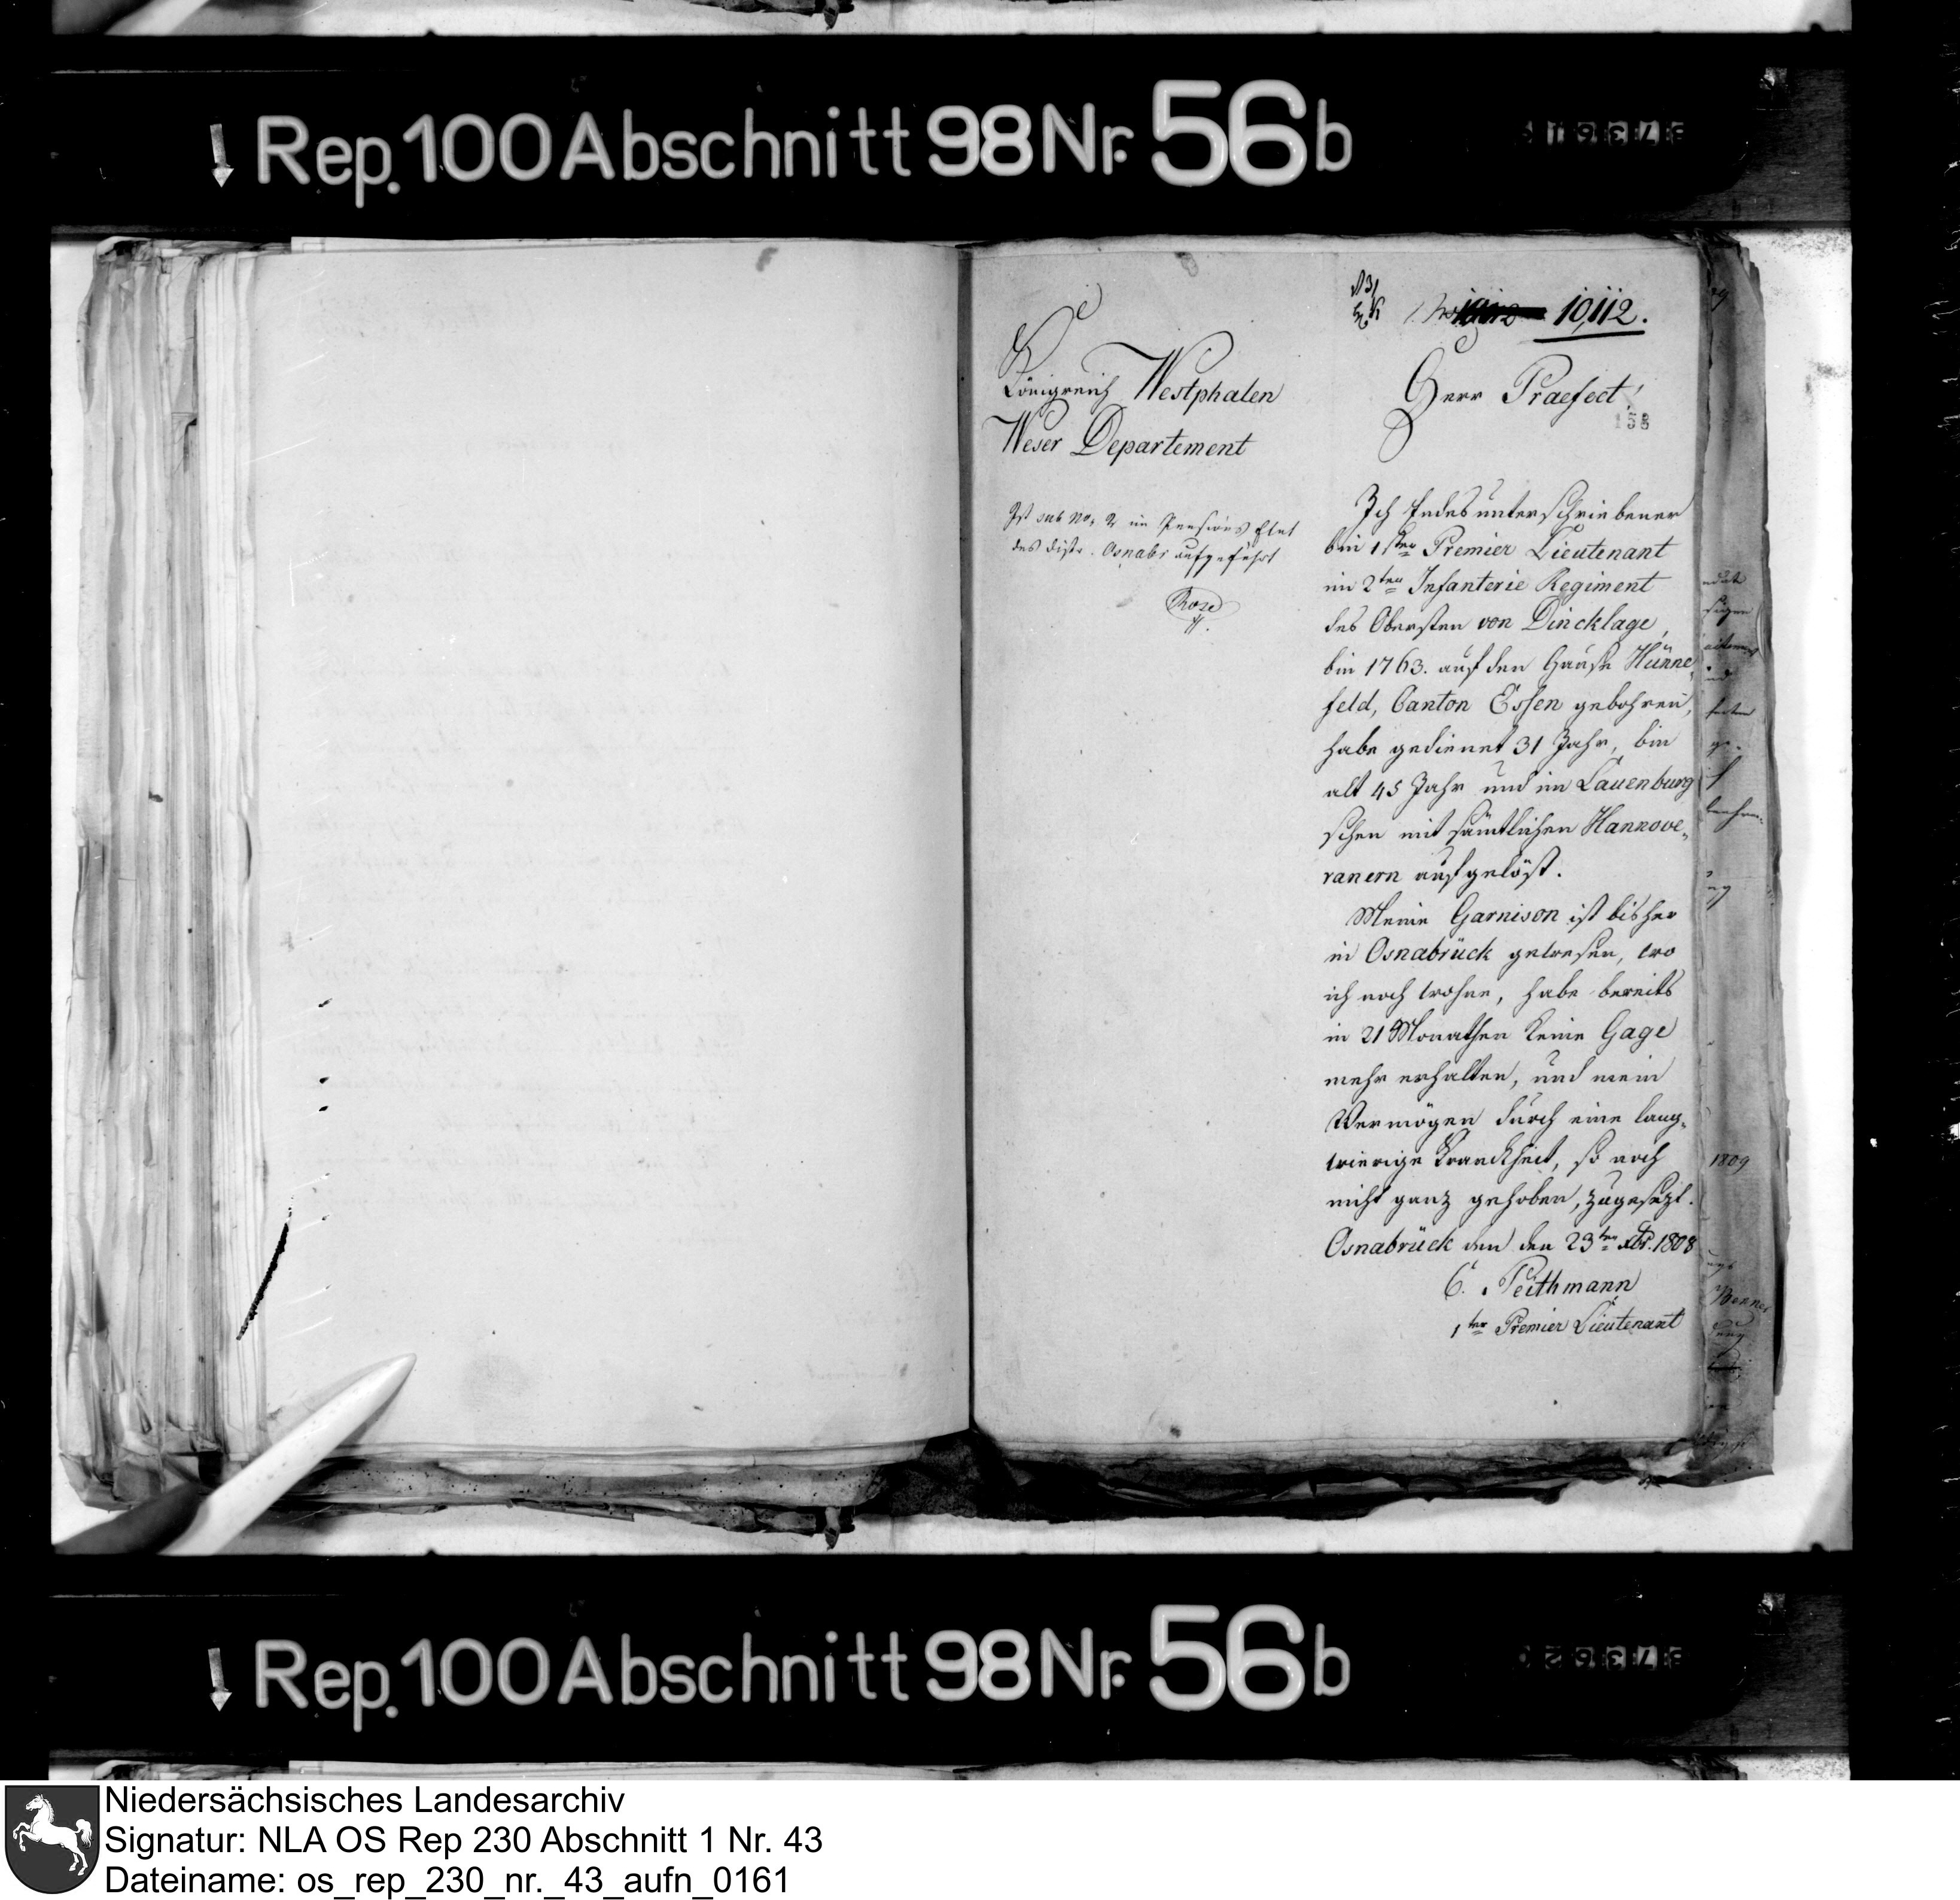 Rep. 100 Abschnitt 98 Nr. 56 b
10,112.
Königreich Westphalen
Weser Departement
Herr Praefect!
158
Ist sub No. 2 im Pensions Etat
des Distr. Osnabr aufgeführt
Rose
Ich Endesunterschriebener
bin 1ster Premier Lieutenant
im 2ten Infanterie Regiment
des Obersten von Dincklage,
bin 1763. auf den Hause Hünne-
feld, Canton Essen gebohren,
habe gedienet 31 Jahr, bin
alt 45 Jahr und im Lauenburg
schen mit sämtlichen Hannove-
ranern aufgelöst.
Meine Garnison ist bisher
in Osnabrück gewesen, wo
ich noch wohne, habe bereits
in 21 Monathen keine Gage
mehr erhalten, und mein
Vermögen durch eine lang-
wierige Kranckheit, so noch
nicht ganz gehoben, zugesezt.
Osnabrück den den 23ten Xbr. 1808
C. Peithmann
1ter Premier Lieutenant
1809
Rep. 100 Abschnitt 98 Nr. 56 b
Niedersächsisches Landesarchiv
Signatur: NLA OS Rep 230 Abschnitt 1 Nr. 43
Dateiname: os_rep_230_nr._43_aufn_0161